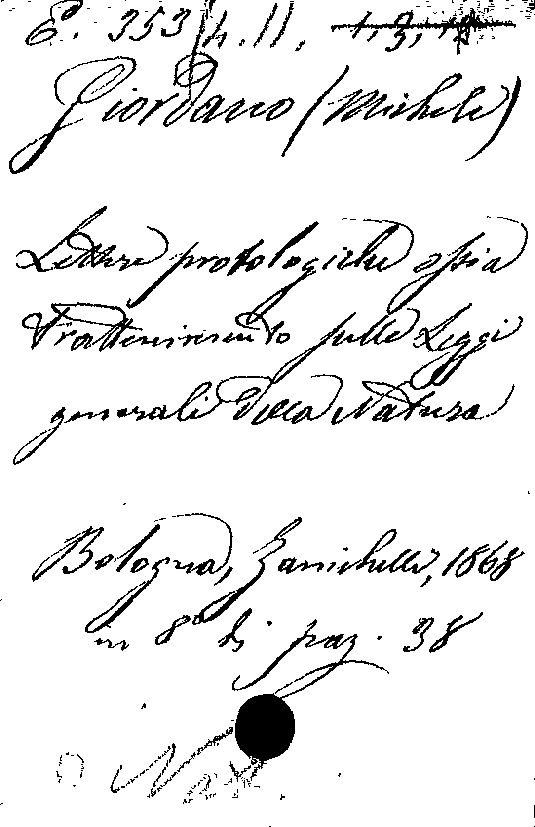 E. 353 / 4. 11. 1, 3, 15
Giordano (Michele)
Lettere protologiche ossia
Trattenimento sulle Leggi
generali della Natura
Bologna, Zanichelli, 1868
in 8° di pag. 38
Nat.